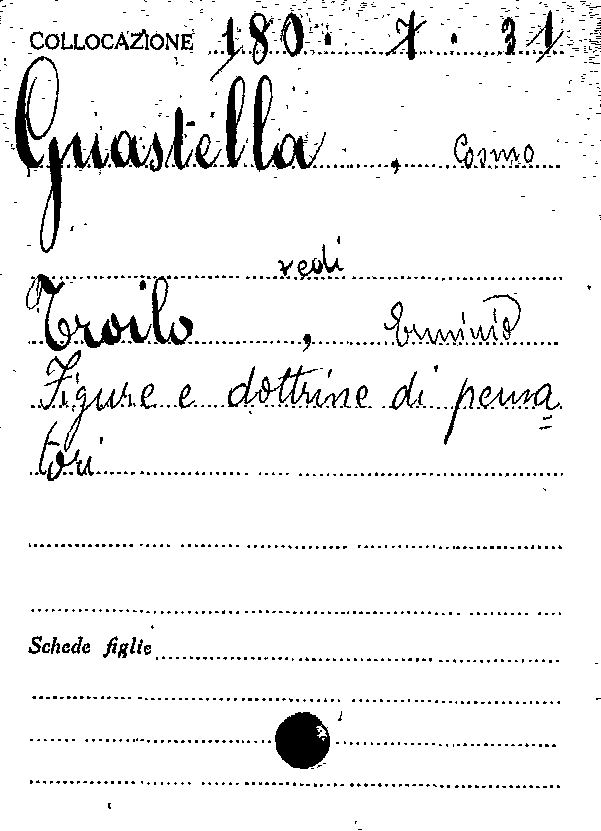 COLLOCAZIONE 180. 7. 31
Guastella, Cosmo
vedi
Troilo, Erminio
Figure e dottrine di pensa=
tori
Schede figlie